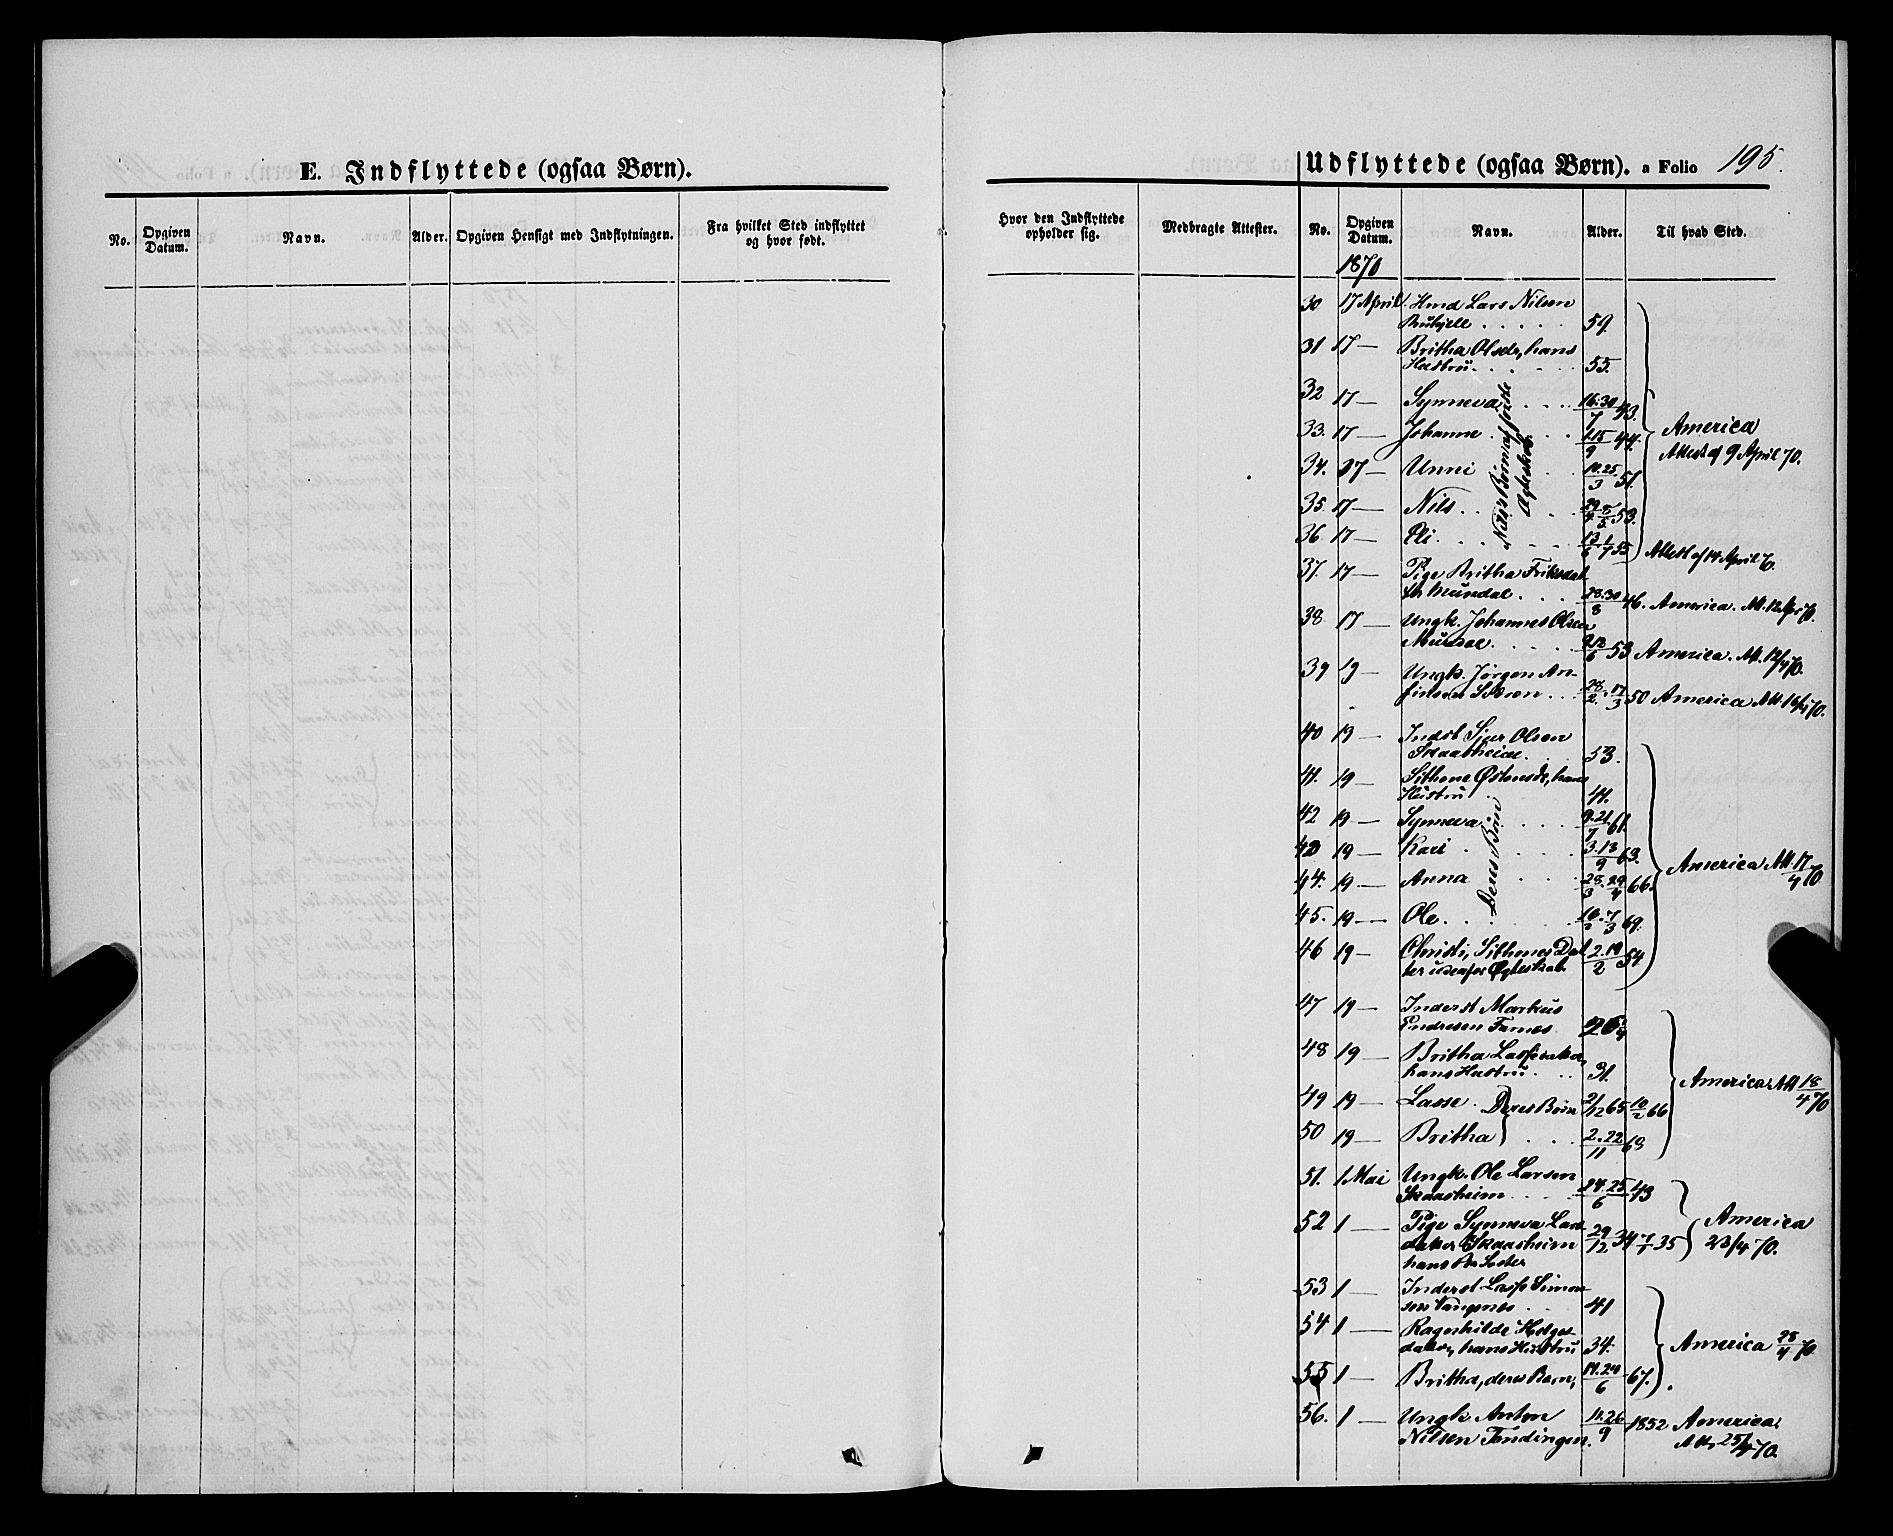 E. Indflyttede (ogsaa Børn).
No.
Opgiven Datum.
Navn.
Alder.
Opgiven Hensigt med Indflytningen.
Fra hvilket Sted indflyttet og hvor født.
Udflyttede (ogsaa Børn). a Folio 195.
Hvor den Indflyttede opholder sig.
Medbragte Attester.
No.
Opgiven Datum.
Navn.
Alder.
Til hvad Sted.
1870
30 17 April Hmd Lars Nilsen
59.
31 17 — Britha Olsdr, hans
Hustru. 55.
32 17 — Synneva 16.30/7 43.
33. 17 — Johanne 1.15/9 44.
34. 17 — Unni 14.25/3 51.
35. 17 — Nils 8/5 53.
36 17 — Oli 13/6 1/7 55
America
Attest af 9 April 70.
Attest af 14 April 70.
37. 17 — Pige Britha Friksdat
Mundal 23.30/8 46. America. Att. 12 Apr 70.
38 17 — Ungk. Johannes Olsen
Mundal 53 America. Att. 12/4 70.
39 19 — Ungk. Jørgen An-
finsen 28/2. 17/3 50 America Att 16/4 70.
40 19 — Indst Sjur Olsen
Skaasheim 53.
41. 19 — Sithone Østensdr, hans
Hustru 41.
42 19 — Synneva 9.21/7 61.
43 19 — Kari 3.13/9 63.
44. 19 — Anna 28/3 29/4 66.
45. 19 — Ole 16/2 7/3 69.
Deres Børn
46 19 — Christi, Sithones Dat
ter udenfor Ægteskab 2.19/2 54
America Att 17/4 70
47 19 — Inderst Markus
Endresen Farnes 26
48 19 — Britha Lassesdatter
hans Hustru 31.
49 19 — Lasse Deres Børn 21/12 65 10/2 66
50 19 — Britha 2.22/11 68
America Att 18/4 70
51. 1 Mai Ungk. Ole Larsen
Skaasheim 24.25/6 43
52 1 — Pige Synneva Lars
datter Skaasheim 29/12 34 7/1 35
hans Søster
America
23/4 70.
53 1 — Inderst Lasse Simon
sen Vangsnes 41
54 1 — Ragnhilde Helges
datter, hans Hustru 34.
55 1 — Britha, deres Barn, 14.24/6 67.
America 28/4 70
56. 1 — Ungk. Anton 11.26/9 1852 America
Nilsen Tendingen. Att. 25/4 70.